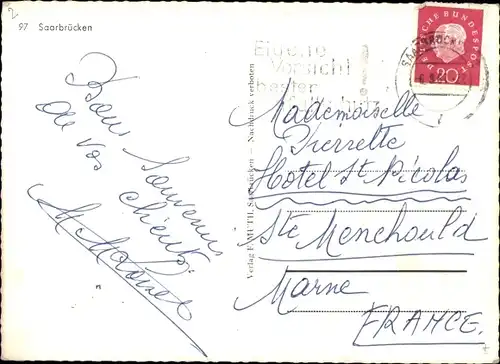 2
97 Saarbrücken
DEUTSCHE BUNDESPOST
20
SAARBRÜCKEN
Eigene
Vorsicht
bester
Bons Souvenirs
de vos
clients
Verlag E. MUTH, Saarbrücken — Nachdruck verboten
Mademoiselle
Pierrette
Hotel St Nicolas
Ste Menehould
Marne
FRANCE.